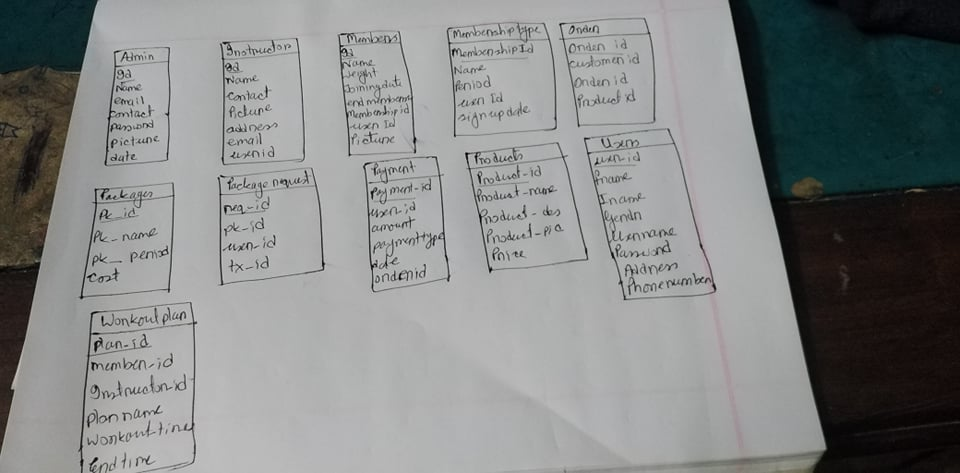 Admin
Id
Name
email
contact
password
picture
date
Instructor
Id
Name
Contact
Picture
address
email
userid
Members
Id
Name
height
Joining date
end members
Membership id
user Id
Picture
Membership type
Membership Id
Name
Period
user Id
signup date
Order
Order id
customer id
Order id
Product id
Packages
Pk_id
Pk_name
pk_period
Cost
Package request
req_id
pk_id
user_id
tx_id
Payment
Payment_id
user_id
amount
payment type
date
order id
Products
Product_id
Product_name
Product_des
Product_pic
Price
Users
user_id
fname
Iname
Username
Password
Address
Phone number
Workout plan
plan_id
member_id
Instructor_id
plan name
workout time
End time